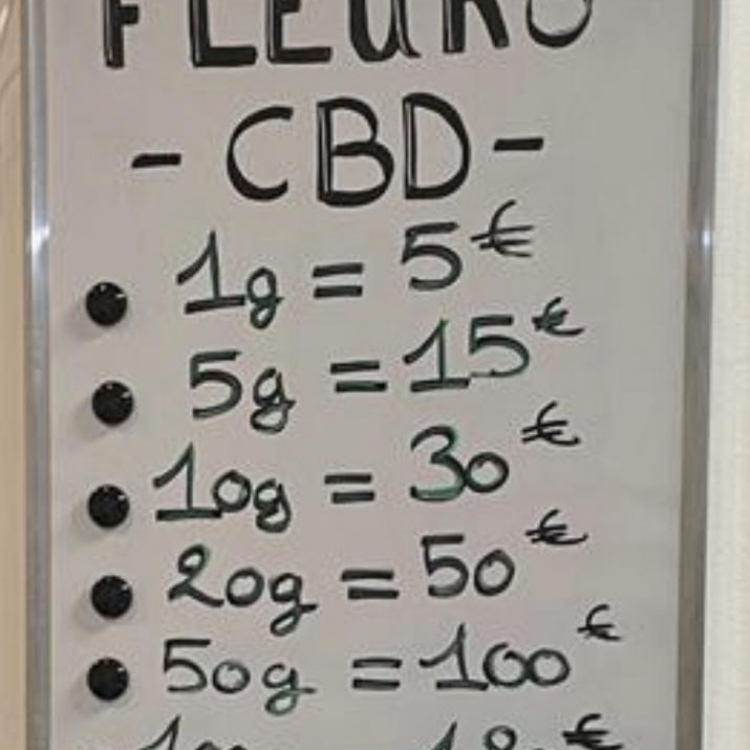 FLEURS
- CBD -
1g = 5€
5g = 15€
10g = 30€
20g = 50€
50g = 100€